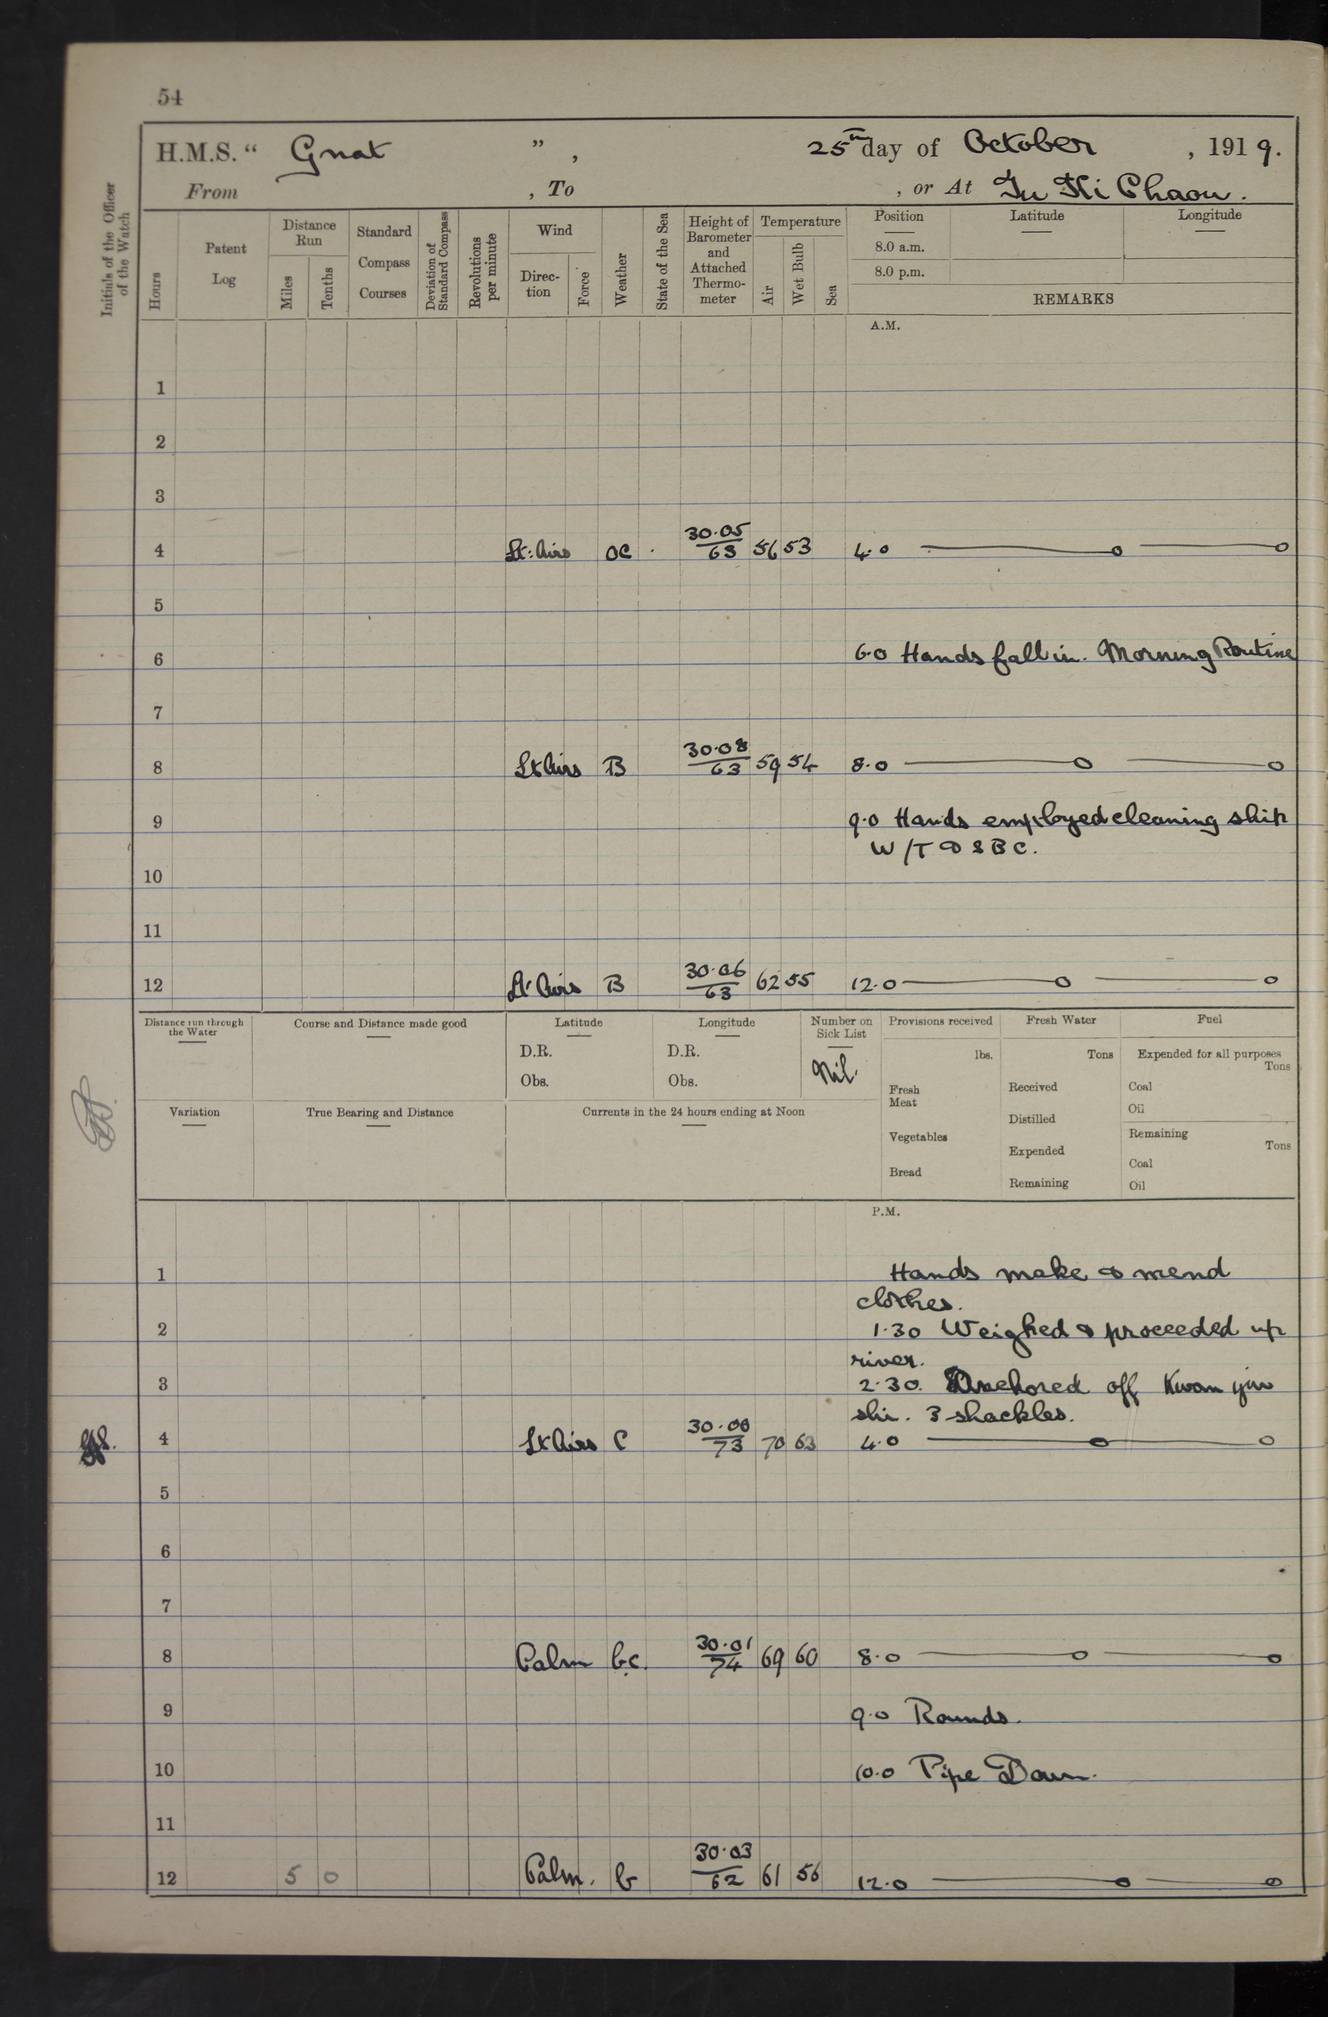 54
H.M.S. “ Gnat ” , 25th day of October , 1919.
From , To , or At Fu Ki Chaou.
Initials of the Officer of the Watch
Hours
Patent Log
Distance Run
Miles
Tenths
Standard Compass Courses
Deviation of Standard Compass
Revolutions per minute
Wind
Direction
Force
Weather
State of the Sea
Height of Barometer and Attached Thermometer
Temperature
Air
Wet Bulb
Sea
Position Latitude Longitude
8.0 a.m.
8.0 p.m.
REMARKS
A.M.
1
2
3
4 Lt: Airs OC 30.05/63 56 53 4.0
5
6 6.0 Hands fall in. Morning Routine
7
8 Lt Airs B 30.08/63 59 54 8.0
9 9.0 Hands employed cleaning ship
W/T & S B C.
10
11
12 Lt Airs B 30.06/63 62 55 12.0
Distance run through the Water
Course and Distance made good
Latitude
D.R.
Obs.
Longitude
D.R.
Obs.
Number on Sick List
Nil.
Variation
True Bearing and Distance
Currents in the 24 hours ending at Noon
Provisions received
lbs.
Fresh Meat
Vegetables
Bread
Fresh Water
Tons
Received
Distilled
Expended
Remaining
Fuel
Expended for all purposes
Tons
Coal
Oil
Remaining
Tons
Coal
Oil
P.M.
1 Hands make & mend
clothes.
2 1.30 Weighed & proceeded up
river.
3 2.30. Anchored off Kwan yin
shi. 3 shackles.
4 Lt Airs C 30.00/73 70 63 4.0
5
6
7
8 Calm b.c. 30.01/74 69 60 8.0
9 9.0 Rounds.
10 10.0 Pipe Down.
11
12 5 0 Calm. b 30.03/62 61 56 12.0